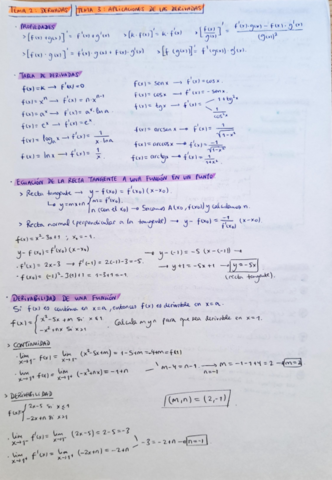 TEMA 2: DERIVADAS TEMA 3: APLICACIONES DE LAS DERIVADAS
PROPIEDADES
> [f(x)±g(x)]' = f'(x)±g'(x) > [k·f(x)]' = k·f'(x) > [f(x)/g(x)]' = f'(x)·g(x) - f(x)·g'(x) / (g(x))²
> [f(x)·g(x)]' = f'(x)·g(x)+f(x)·g'(x)
TABLA DE DERIVADAS
f(x)=k → f'(x)=0
f(x)=senx → f'(x)=cosx.
f(x)=xⁿ → f'(x)=n·xⁿ⁻¹
f(x)=cosx → f'(x)=-senx.
f(x)=aˣ → f'(x)=aˣ·lna
f(x)=tgx → f'(x)= 1+tg²x
f(x)=eˣ → f'(x)=eˣ
f(x)=arcsenx → f'(x)= 1/√1-x²
f(x)=logₐx → f'(x)= 1/x·lna
f(x)=arccosx → f'(x)= -1/√1-x²
f(x)=lnx → f'(x)= 1/x
f(x)=arctgx → f'(x)= 1/1+x²
ECUACIÓN DE LA RECTA TANGENTE A UNA FUNCIÓN EN UN PUNTO
> Recta tangente → y-f(x₀)=f'(x₀)(x-x₀)
y=mx+n m=f'(x₀)
> Recta normal (perpendicular a la tangente) → y-f(x₀)= -1/f'(x₀) (x-x₀)
f(x)=x²-3x+1; x₀=-1.
y-f(x₀)=f'(x₀)(x-x₀)
f'(x)=2x-3 → f'(-1)=2(-1)-3=-5.
y+1=-5x+1 → y=-5x
(recta tangente).
DERIVABILIDAD DE UNA FUNCIÓN
Si f(x) es continua en x=a, entonces f(x) es derivable en x=a.
f(x)= x²-5x+m si x≤1
-x²+nx si x>1
Calcula m y n para que sea derivable en x=1.
> CONTINUIDAD
m-4=n-1
m=2
> DERIVABILIDAD
f'(x) 2x-5 si x≤1
-2x+n si x>1
(m,n)=(2,-1)
lim f'(x)= lim (2x-5)=2-5=-3
lim f'(x)= lim (-2x+n)=-2+n
-3=-2+n → n=-1